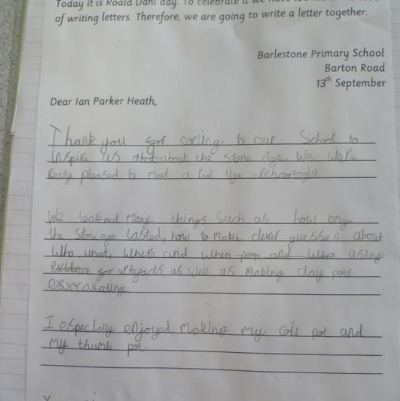 Today it is Roald Dahl day. To celebrate it we have
of writing letters. Therefore, we are going to write a letter together.
Barlestone Primary School
Barton Road
13th September
Dear Ian Parker Heath,
Thank you for coming to our School to
inspire us about the Stone Age. We were
realy pleased to meet a real life
We many things Such as how long
the Stoneage lasted, how to Make clever guesses about
Who what, Where and when and when using
evidence for as well as Making clay pots
I especially enjoyed Making my coil pot and
My thumb pot.